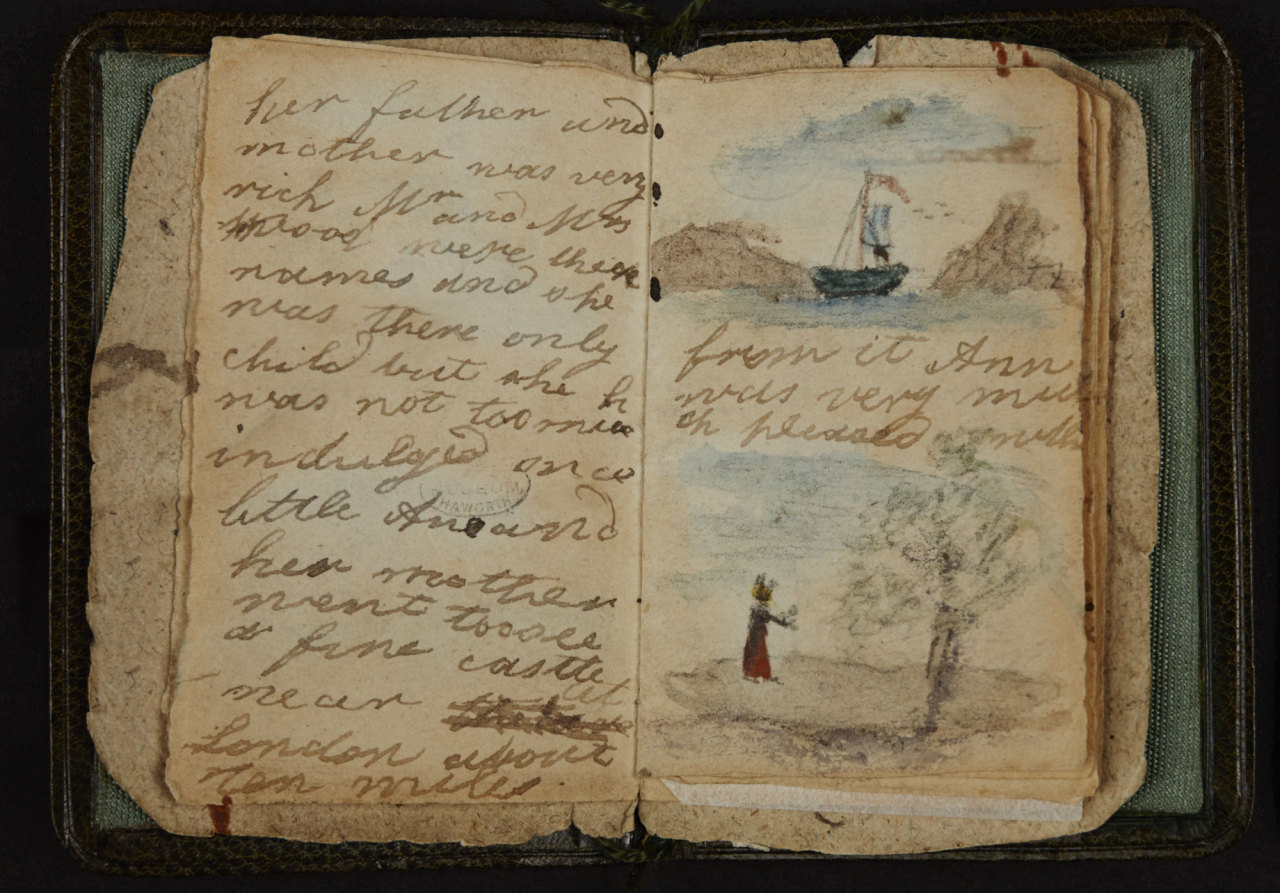 her father and
mother was very
rich Mr and Mrs
Wood were there
names and she
was there only
child but she h
was not too muc
indulged once
little Ane and
her mother
went too see
a fine castle
near
London about
ten miles.
MUSEUM
HAWORTH
from it Ann
was very mu
ch pleased with